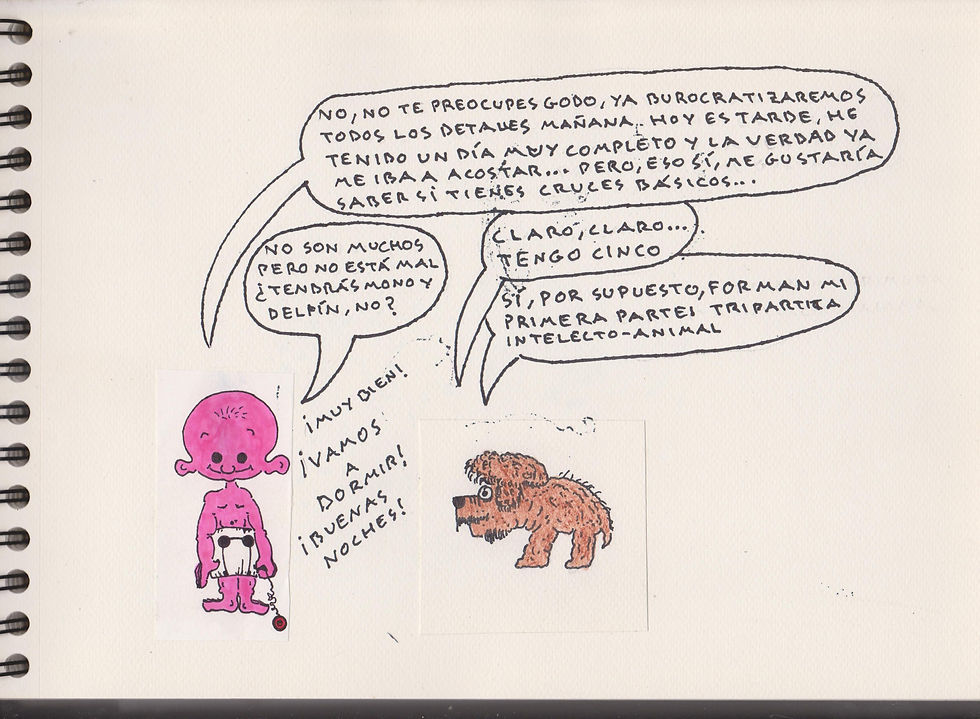 NO, NO TE PREOCUPES GODO, YA BUROCRATIZAREMOS
TODOS LOS DETALLES MAÑANA. HOY ES TARDE, HE
TENIDO UN DÍA MUY COMPLETO Y LA VERDAD YA
ME IBA A ACOSTAR... PERO, ESO SÍ, ME GUSTARÍA
SABER SI TIENES CRUCES BÁSICOS...
CLARO, CLARO...
TENGO CINCO
NO SON MUCHOS
PERO NO ESTÁ MAL
¿TENDRÁS MONO Y
DELFÍN, NO?
SÍ, POR SUPUESTO, FORMAN MI
PRIMERA PARTE: TRIPARTITA
INTELECTO-ANIMAL
¡MUY BIEN!
¡VAMOS
A
DORMIR!
¡BUENAS
NOCHES!